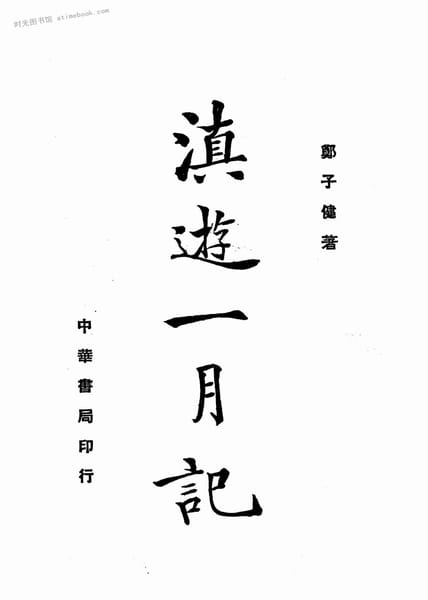 时光图书馆 atimebook.com
鄭子健著
滇遊一月記
中華書局印行